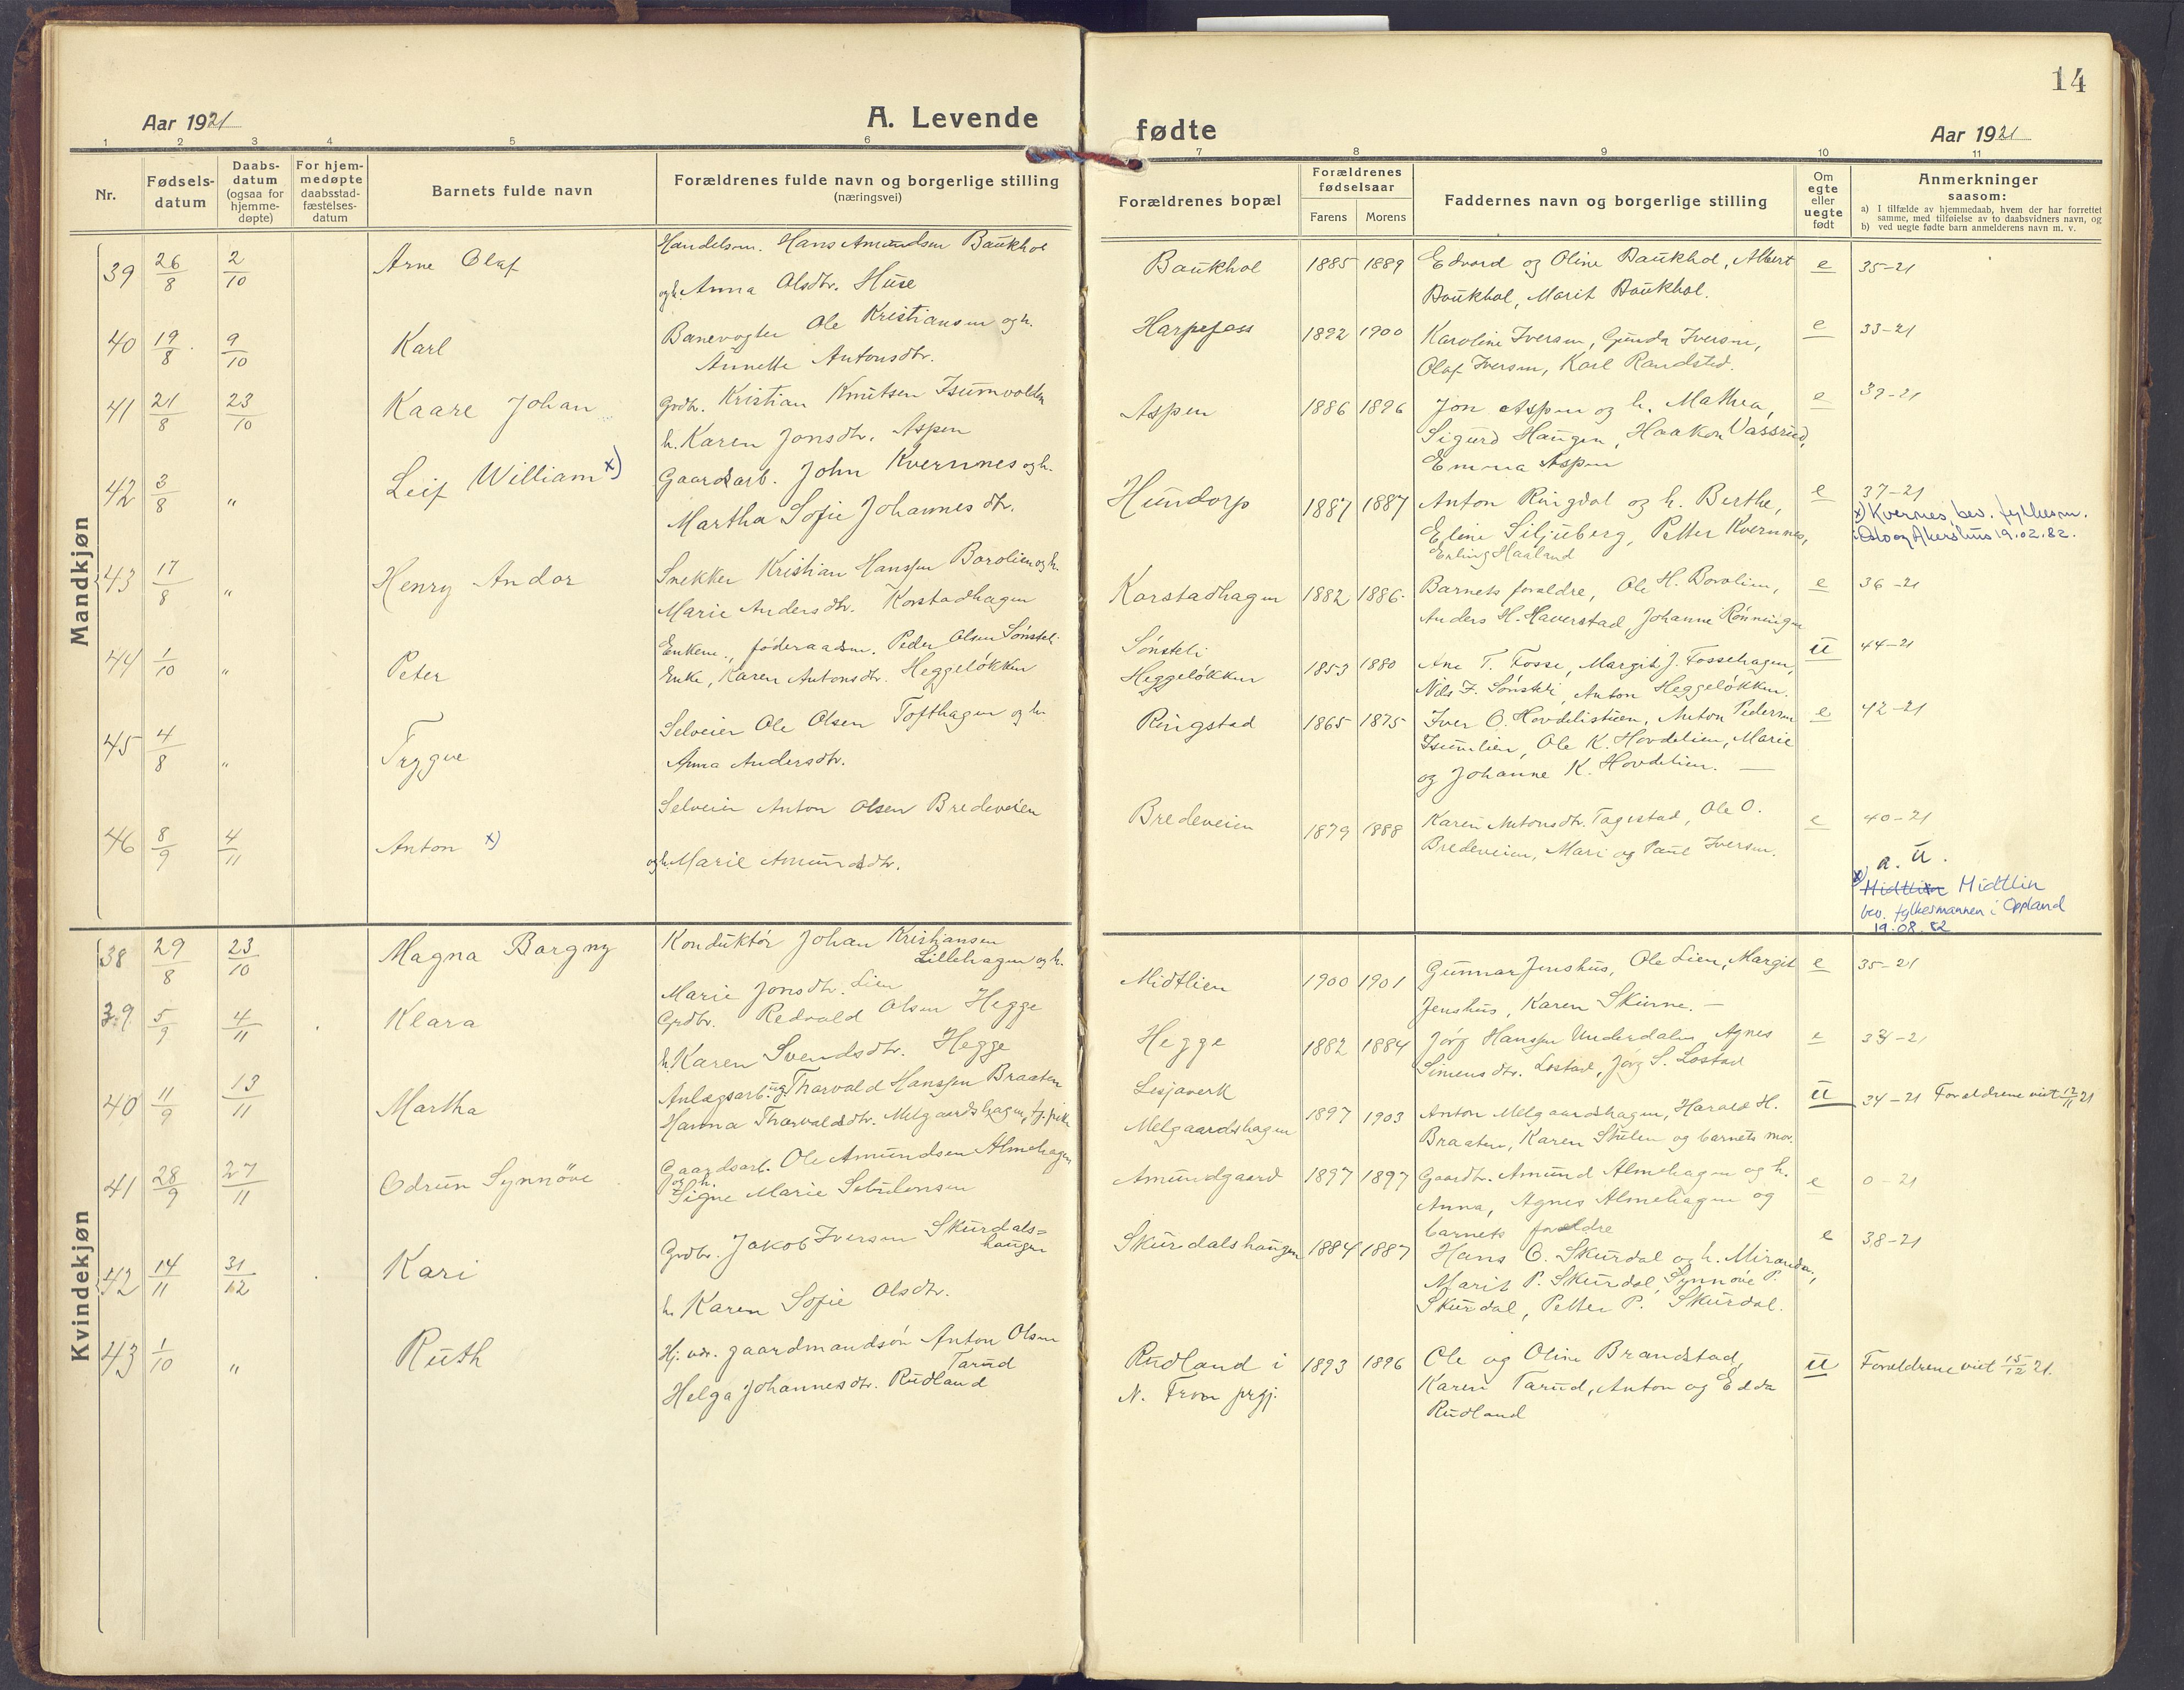 14
Aar 1921
A. Levende
fødte
Aar 1921
1 2 3 4 5 6 7 8 9 10 11
Nr.
Fødsels-
datum
Daabs-
datum
(ogsaa for
hjemme-
døpte)
For hjem-
medøpte
daabsstad-
fæstelses-
datum
Barnets fulde navn
Forældrenes fulde navn og borgerlige stilling
(næringsvei)
Forældrenes bopæl
Forældrenes
fødselsaar
Farens Morens
Faddernes navn og borgerlige stilling
Om
egte
eller
uegte
født
Anmerkninger
saasom:
a) I tilfælde av hjemmedaab, hvem der har forrettet
samme, med tilføielse av to daabsvidners navn, og
b) ved uegte fødte barn anmelderens navn m. v.
Mandkjøn
39 26/8 2/10 Arne Olaf
Handelsm. Hans Amundsen Baukhol
og h. Anna Olsdtr. Huse
Baukhol 1885 1889
Edvard og Oline Baukhol, Albert
Baukhol, Marit Baukhol.
e 35-21
40 19/8 9/10 Karl
Banevogter Ole Kristiansen og h.
Annette Antonsdtr.
Harpefoss 1892 1900
Karoline Iversen, Gunda Iversen,
Olaf Iversen, Karl Randsted.
e 33-21
41 21/8 23/10 Kaare Johan
Grdbr. Kristian Knutsen Isumvolden
h. Karen Jonsdtr. Aspen
Aspen 1886 1896
Jon Aspen og h. Mathea,
Sigurd Haugen, Haakon Vassrud,
Emma Aspen
e 39-21
42 3/8 " Leif William x)
Gaardsarb. John Kvernnes og h.
Martha Sofie Johannesdtr.
Hundorp 1887 1887
Anton Ringdal og h. Berthe,
Eline Siljuberg, Petter Kvernnes,
Erling Haaland
e 37-21
x) Kvernes bev. fylkesm.
i Oslo og Akershus 19.02.82.
43 17/8 " Henry Andor
Snekker Kristian Hanssen Borolien og h.
Marie Andersdtr. Korstadhagen
Korstadhagen 1882 1886
Barnets forældre, Ole H. Borolien,
Anders H. Haverstad, Johanne Rønningen
e 36-21
44 1/10 " Peter
Enkem., føderaadsm. Peder Olsen Sønsteli
Enke, Karen Antonsdtr. Heggeløkken
Sønsteli
Heggeløkken 1853 1880
Ane T. Fosse, Margit J. Fossehagen,
Nils F. Sønsteli, Anton Heggeløkken.
u 44-21
45 4/8 " Trygve
Selveier Ole Olsen Tofthagen og h.
Anna Andersdtr.
Ringstad 1865 1875
Iver O. Hovdelistuen, Anton Pedersen
Isumlien, Ole K. Hovdelien, Marie
og Johanne K. Hovdelien. —
e 42-21
46 8/9 4/11 Anton x)
Selveier Anton Olsen Bredeveien
og h. Marie Amundsdtr.
Bredeveien 1879 1888
Karen Antonsdtr. Tagestad, Ole O.
Bredeveien, Mari og Paul Iversen.
e 40-21
a. u.
x) Midtlien Midtlin
bev. fylkesmannen i Oppland
19.08.82
Kvindekjøn
38 29/8 23/10 Magna Borgny
Konduktør Johan Kristiansen
Lillehagen og h.
Marie Jonsdtr. Lien
Midtlien 1900 1901
Gunnar Jenshus, Ole Lien, Margit
Jenshus, Karen Skurne. —
e 35-21
39 5/9 4/11 Klara
Grdbr. Redvald Olsen Hegge
h. Karen Svendsdtr. Hegge
Hegge 1882 1884
Jørg Hanssen Underdalen Agnes
Simensdtr. Lostad, Jørg S. Lostad
e 34-21
40 11/9 13/11 Martha
Anlægsarb. ug. Thorvald Hanssen Braaten
Hanna Thorvaldsdtr. Melgaardshagen, tj.pike
Lesjaverk
Melgaardshagen 1897 1903
Anton Melgaardshagen, Harald H.
Braaten, Karen Stulen og barnets mor.
u 34-21 Forældrene viet 12/11 21
41 28/9 27/11 Odrun Synnöve
Gaardsarb. Ole Amundsen Almehagen
og h.
Signe Marie Sebulonsen
Amundgaard 1897 1897
Gaardbr. Amund Almehagen og h.
Anna, Agnes Almehagen og
barnets forældre
e 0-21
42 14/11 31/12 Kari
Grdbr. Jakob Iversen Skurdals=
haugen
h. Karen Sofie Olsdtr.
Skurdalshaugen 1884 1887
Hans O. Skurdal og h. Miranda,
Marit P. Skurdal, Synnøve P.
Skurdal, Petter P. Skurdal.
e 38-21
43 1/10 " Ruth
Hj. vær. gaardmandsøn Anton Olsen
Tarud
Helga Johannesdtr. Rudland
Rudland i
N. Fron prgj. 1893 1896
Ole og Oline Brandstad,
Karen Tarud, Anton og Edda
Rudland
u Forældrene viet 15/12 21.